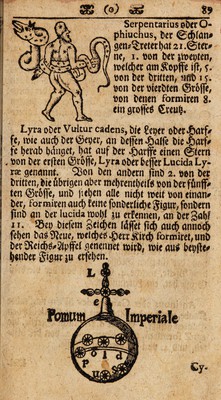 (o) 89
Serpentarius oder O-
phiuchus, der Schlan-
gen-Treter hat 21. Ster-
ne, 1. von der zweyten,
welcher am Kopffe ist, 5.
von der dritten, und 15.
von der vierdten Grösse,
von denen formiren 8.
ein grosses Creutz.
Lyra oder Vultur cadens, die Leyer oder Harf-
fe, wie auch der Geyer, an dessen Halse die Harf-
fe herab hänget, hat auf der Harffe einen Stern
von der ersten Grösse, Lyra oder besser Lucida Ly-
ræ genannt. Von den andern sind 2. von der
dritten, die übrigen aber mehrentheils von der fünff-
ten Grösse, und stehen alle nicht weit von einan-
der, formiren auch keine sonderliche Figur, sondern
sind an der lucida wohl zu erkennen, an der Zahl
11. Bey diesem Zeichen lässet sich auch annoch
sehen das Neue, welches Herr Kirch formiret, und
der Reichs-Apffel genennet wird, wie aus beyste-
hender Figur zu ersehen.
L
e
Pomum Imperiale
o
P
o
l
d
P
u
S
Cy-